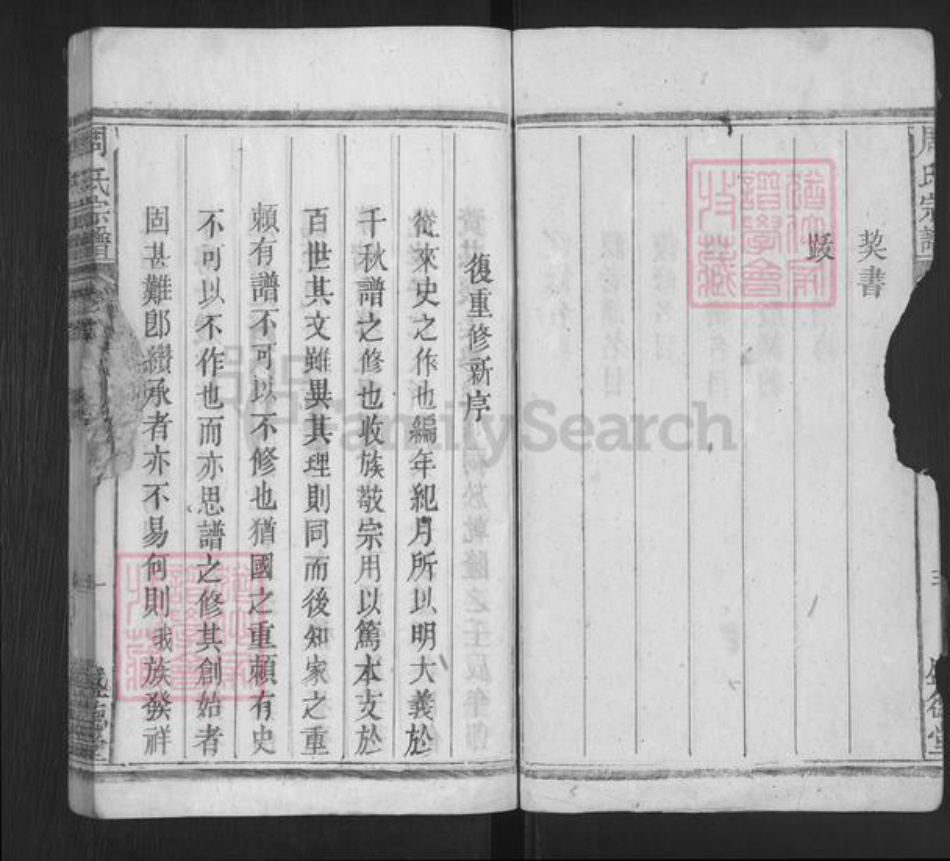 周氏宗譜
契書
跋
復重修新序
從來史之作也編年紀月所以明大義於
千秋譜之修也收族敬宗用以篤本支於
百世其文雖異其理則同而後知家之重
頼有譜不可以不修也猶國之重頼有史
不可以不作也而亦思譜之修其創始者
固甚難卽纘承者亦不易何則我族發祥
周氏宗譜
盛德堂
FamilySearch
譜學會
收藏
譜學會
收藏